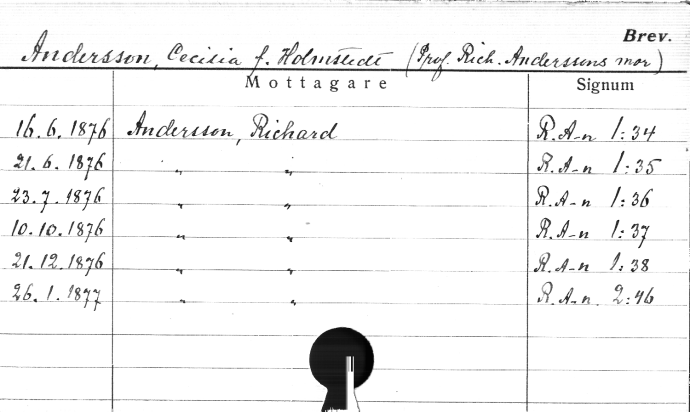 Brev.
Andersson, Cecilia f. Holmstedt (Prof. Rich. Anderssons mor)
Mottagare Signum
16.6.1876 Andersson, Richard R.A-n 1:34
21.6.1876 " " R.A-n 1:35
23.7.1876 " " R.A-n 1:36
10.10.1876 " " R.A-n 1:37
21.12.1876 " " R.A-n 1:38
26.1.1877 " " R.A-n. 2:46